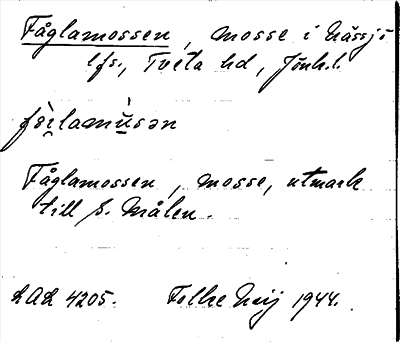 Fåglamossen, mosse i Nässjö
lfs., Tveta hd, Jönk.l.
Fåglamossen, mosse, utmark
till S. Målen.
LAL 4205. Folke Meij 1944.